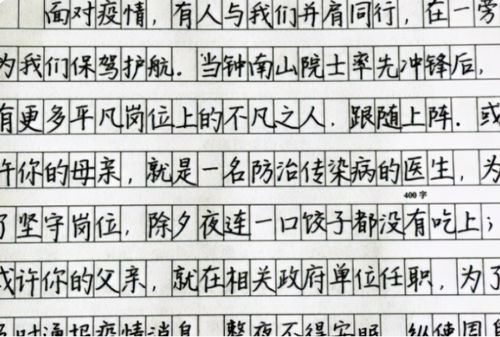 面对疫情，有人与我们并肩同行，在一旁
为我们保驾护航．当钟南山院士率先冲锋后，
有更多平凡岗位上的不凡之人，跟随上阵．或
许你的母亲，就是一名防治传染病的医生，为
400字
了坚守岗位，除夕夜连一口饺子都没有吃上；
或许你的父亲，就在相关政府单位任职，为了
及时通报疫情消息，整夜不得安眠．纵使困